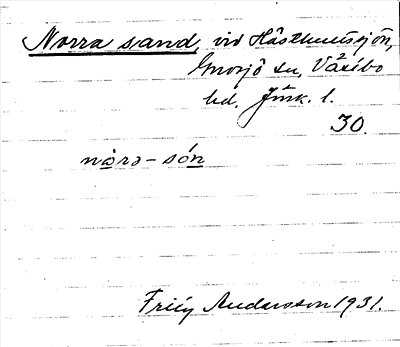 Norra sand, vid Hästhultsjön,
Gnosjö sn, Västbo
hd. Jönk. l.
30.
nårə-són
Frity Andersson 1931.